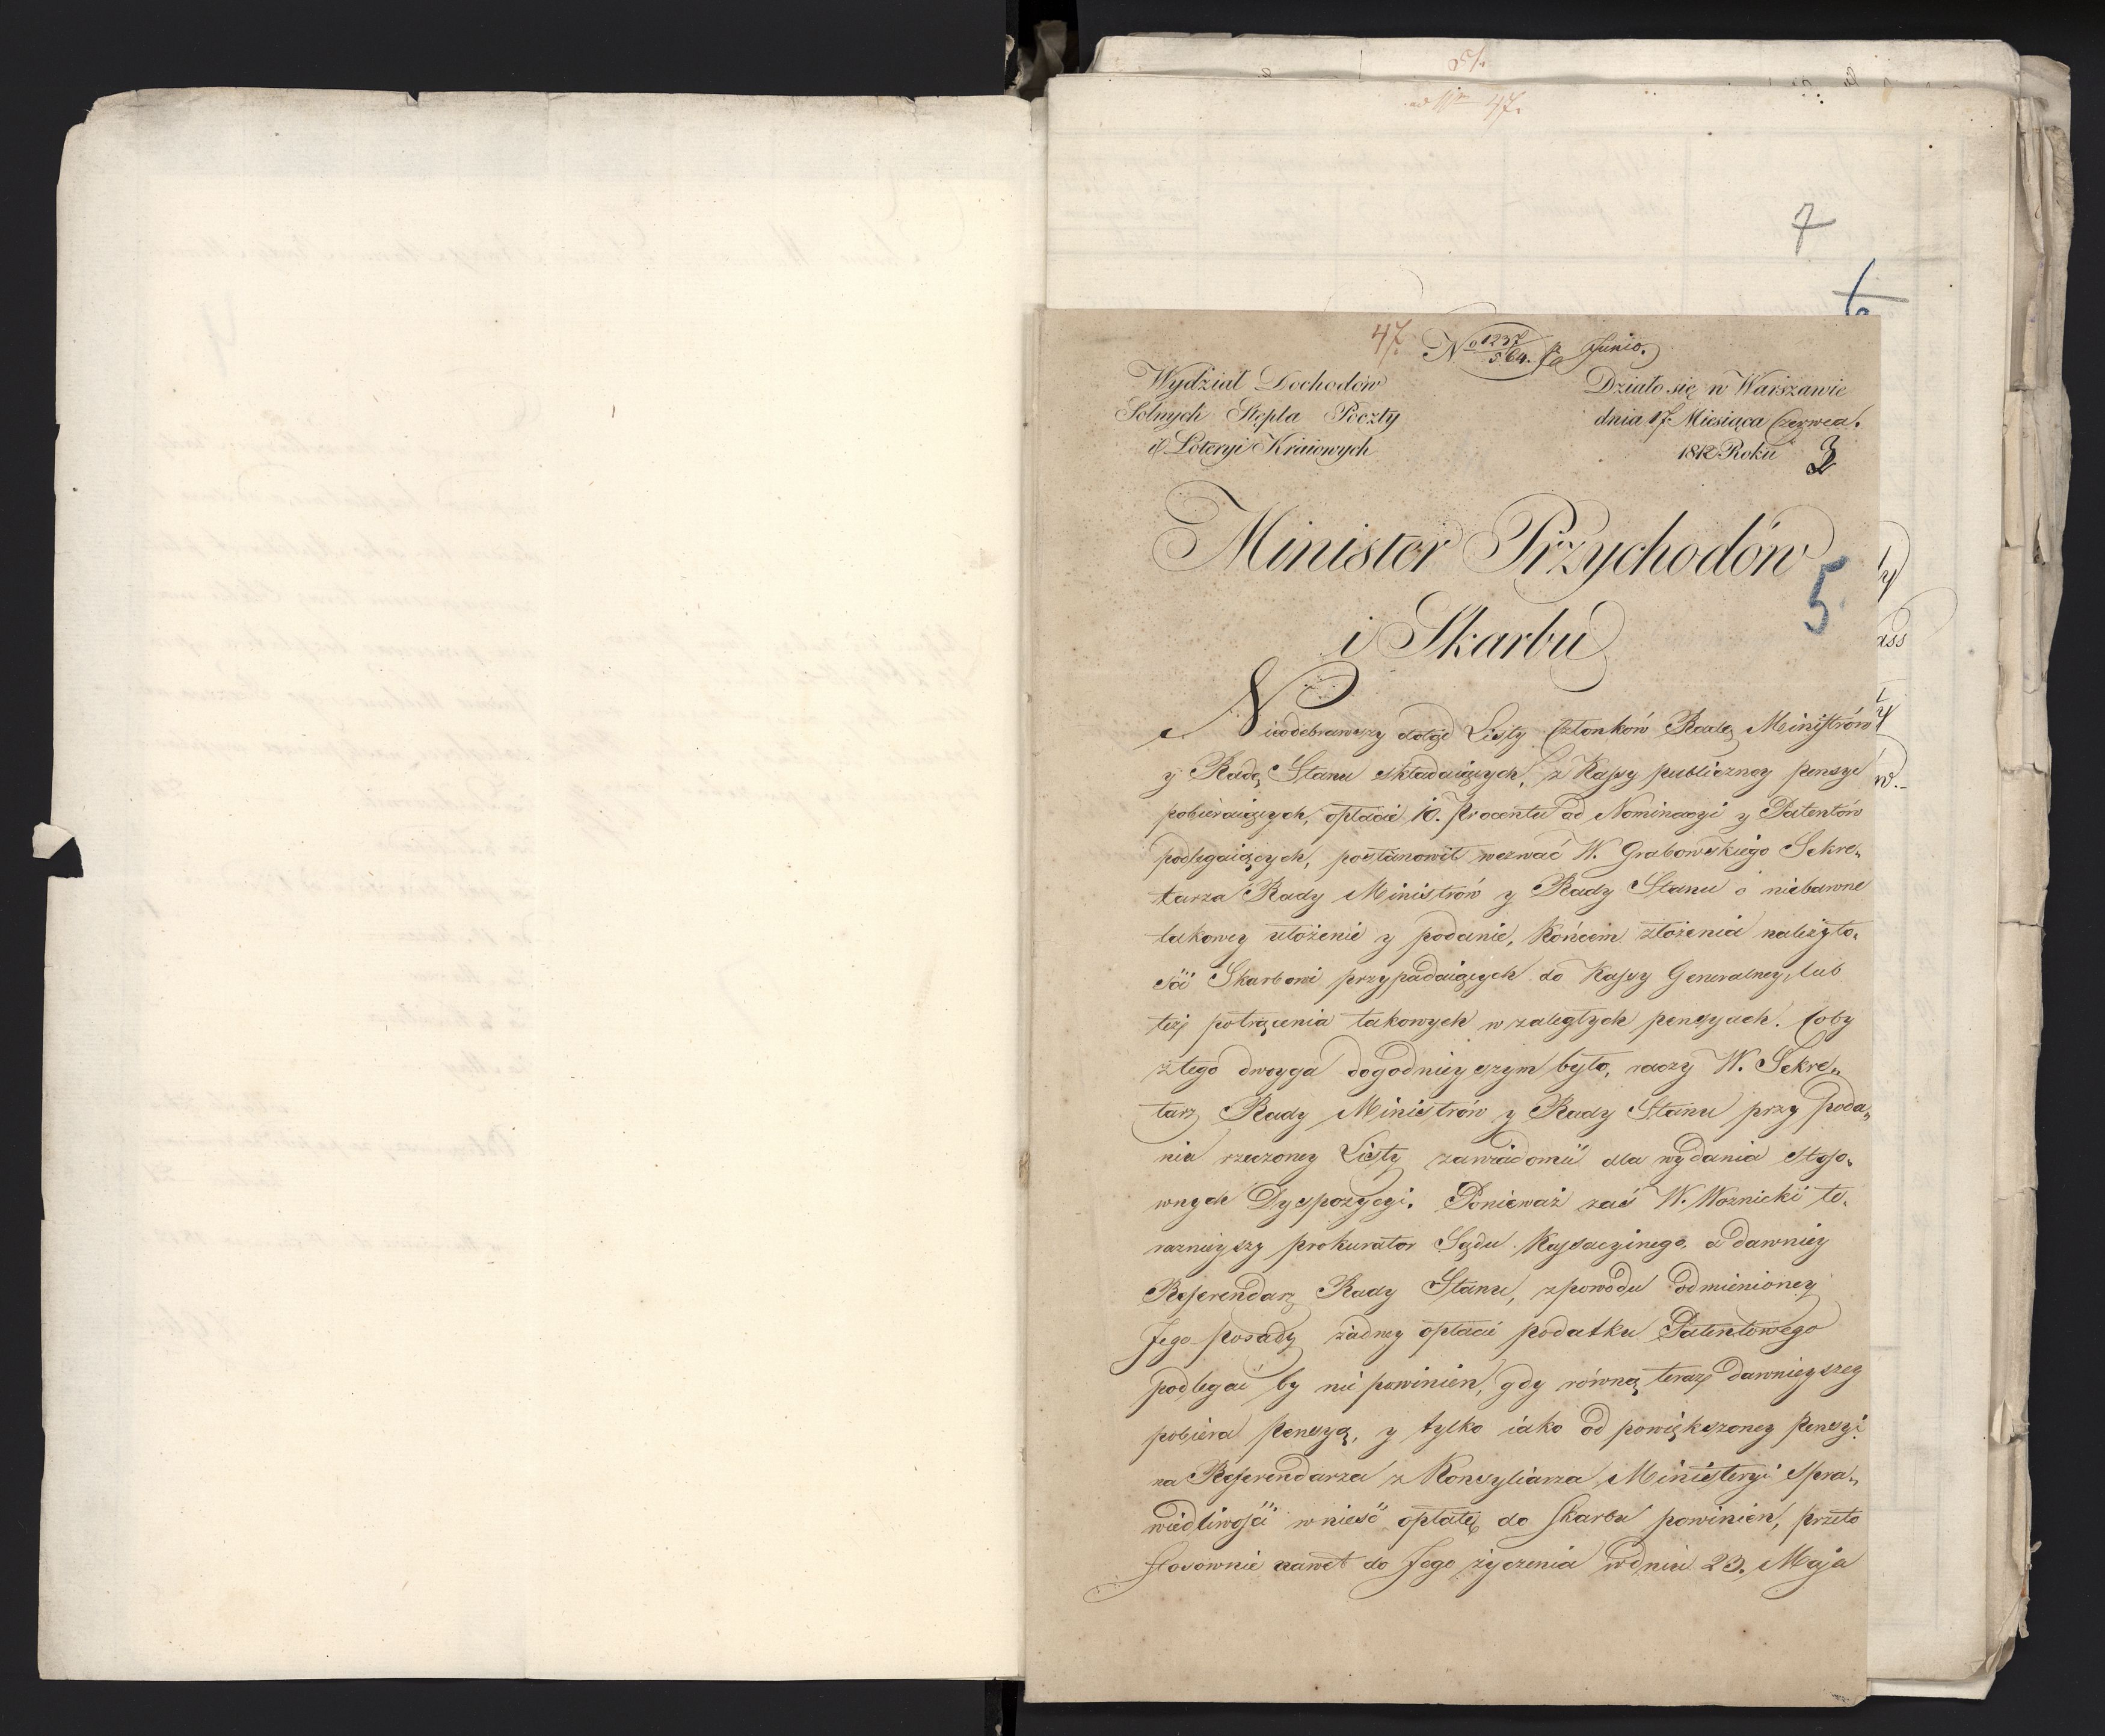 ad Nm 47.
7
6
47. No 1237/564. Junio.
Wydział Dochodów
Solnych Stępla Poczty
i Loteryi Kraiowych
Działo się w Warszawie
dnia 17 Miesiąca Czerwca.
1812 Roku
3
Minister Przychodów
i Skarbu
5
Nieodebrawszy dotąd Listy Członków Radę Ministrów
y Radę Stanu składaiących, z Kassy publiczney pensye
pobieraiących, opłacie 10. Procentu od Nominacyi y Patentów
podlegaiących, postanowił wezwać W. Grabowskiego Sekre„
tarza Rady Ministrów y Rady Stanu o niebawne
takowey ułożenie y podanie, Końcem złożenia należyto„
ści Skarbowi przypadaiących do Kassy Generalney, lub
też potrącenia takowych w zaległych pensyach. Coby
z tego dwoyga dogodnieyszym było, raczy W. Sekre„
tarz Rady Ministrów y Rady Stanu przy poda„
niu rzeczoney Listy zawiadomić dla wydania stoso„
wnych Dyspozycyi. Ponieważ zaś W. Woznicki te„
raznieyszy prokurator Sądu Kassacyinego, a dawniey
Referendarz Rady Stanu, z powodu odmienioney
Jego posady żadney opłacie podatku Patentowego
podlegać by nie powinien, gdy równą teraz dawnieyszey
pobiera pensyą, y tylko iako od powiększoney Pensyi
na Referendarza z Konsyliarza Ministeryi Spra„
wiedliwości wnieść opłatę do Skarbu powinien, przeto
stosownie nawet do Jego życzenia w dniu 23. Maja